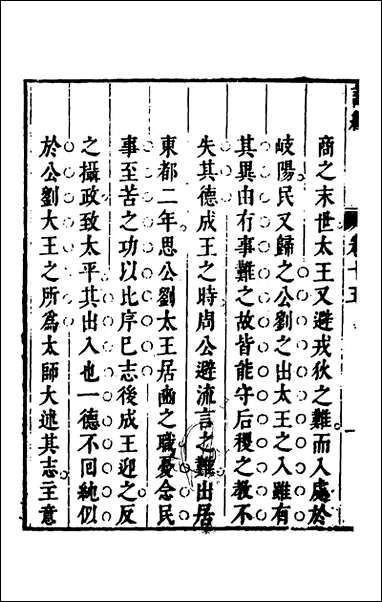 商之末世太王又避戎狄之難而入處於
岐陽民又歸之公劉之出太王之入雖有
其異由有事難之故皆能守后稷之教不
失其德成王之時周公避流言之難出居
東都二年思公劉太王居豳之職憂念民
事至苦之功以比序已志後成王迎之反
之攝政致太平其出入也一德不回純似
於公劉大王之所為太師大述其志主意
卷十五